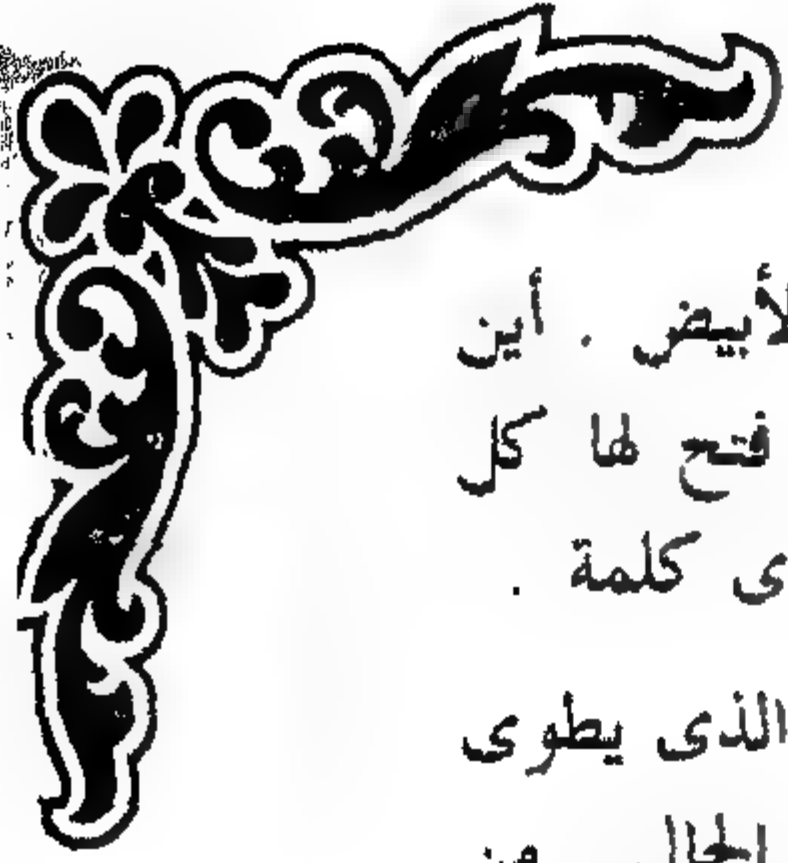 لأبيض . أين
فتح لها كل
ى كلمة .
الذى يطوى
الحال من